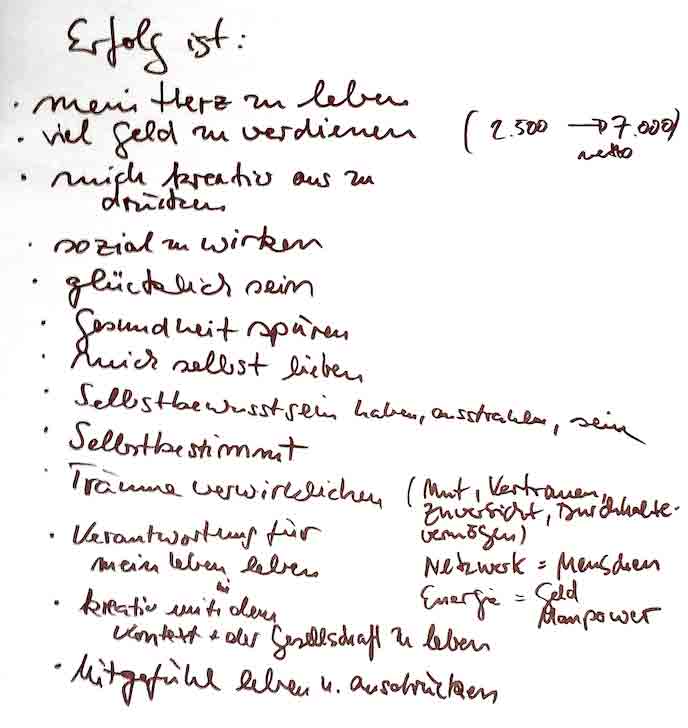 Erfolg ist:
· mein Herz zu leben
· viel Geld zu verdienen (2.500 → 7.000)
netto
· mich kreativ aus zu
drücken
· sozial zu wirken
· glücklich sein
· Gesundheit spüren
· mich selbst lieben
· Selbstbewusstsein haben, ausstrahlen, sein
· Selbstbestimmt
· Träume verwirklichen (Mut, Vertrauen,
Zuversicht, Durchhalte-
vermögen)
· Verantwortung für
mein Leben leben
Netzwerk = Menschen
Energie = Geld
Manpower
· kreativ mit dem
Kontext + der Gesellschaft zu leben
· Mitgefühl leben u. ausdrücken